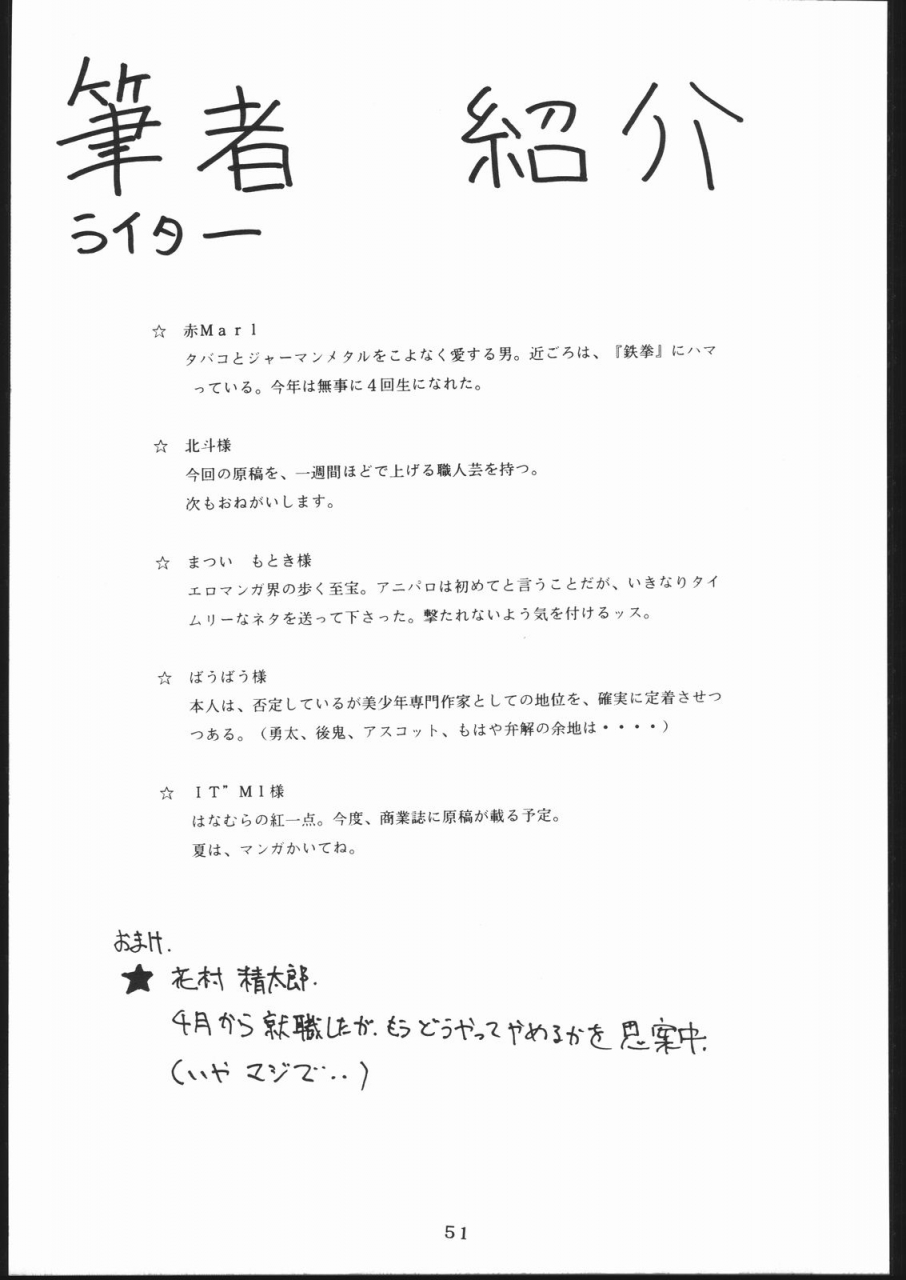 筆者　紹介
ライター
☆　赤Ｍａｒｌ
タバコとジャーマンメタルをこよなく愛する男。近ごろは、『鉄拳』にハマ
っている。今年は無事に４回生になれた。
☆　北斗様
今回の原稿を、一週間ほどで上げる職人芸を持つ。
次もおねがいします。
☆　まつい　もとき様
エロマンガ界の歩く至宝。アニパロは初めてと言うことだが、いきなりタイ
ムリーなネタを送って下さった。撃たれないよう気を付けるッス。
☆　ばうばう様
本人は、否定しているが美少年専門作家としての地位を、確実に定着させつ
つある。（勇太、後鬼、アスコット、もはや弁解の余地は・・・・）
☆　ＩＴ”Ｍ１様
はなむらの紅一点。今度、商業誌に原稿が載る予定。
夏は、マンガかいてね。
おまけ.
★ 花村 精太郎.
4月から就職したが、もうどうやってやめるかを思案中.
(いや マジで‥)
51